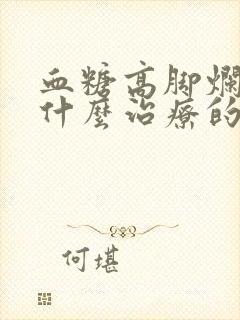 血糖高脚爛
什麼治療的
何堪